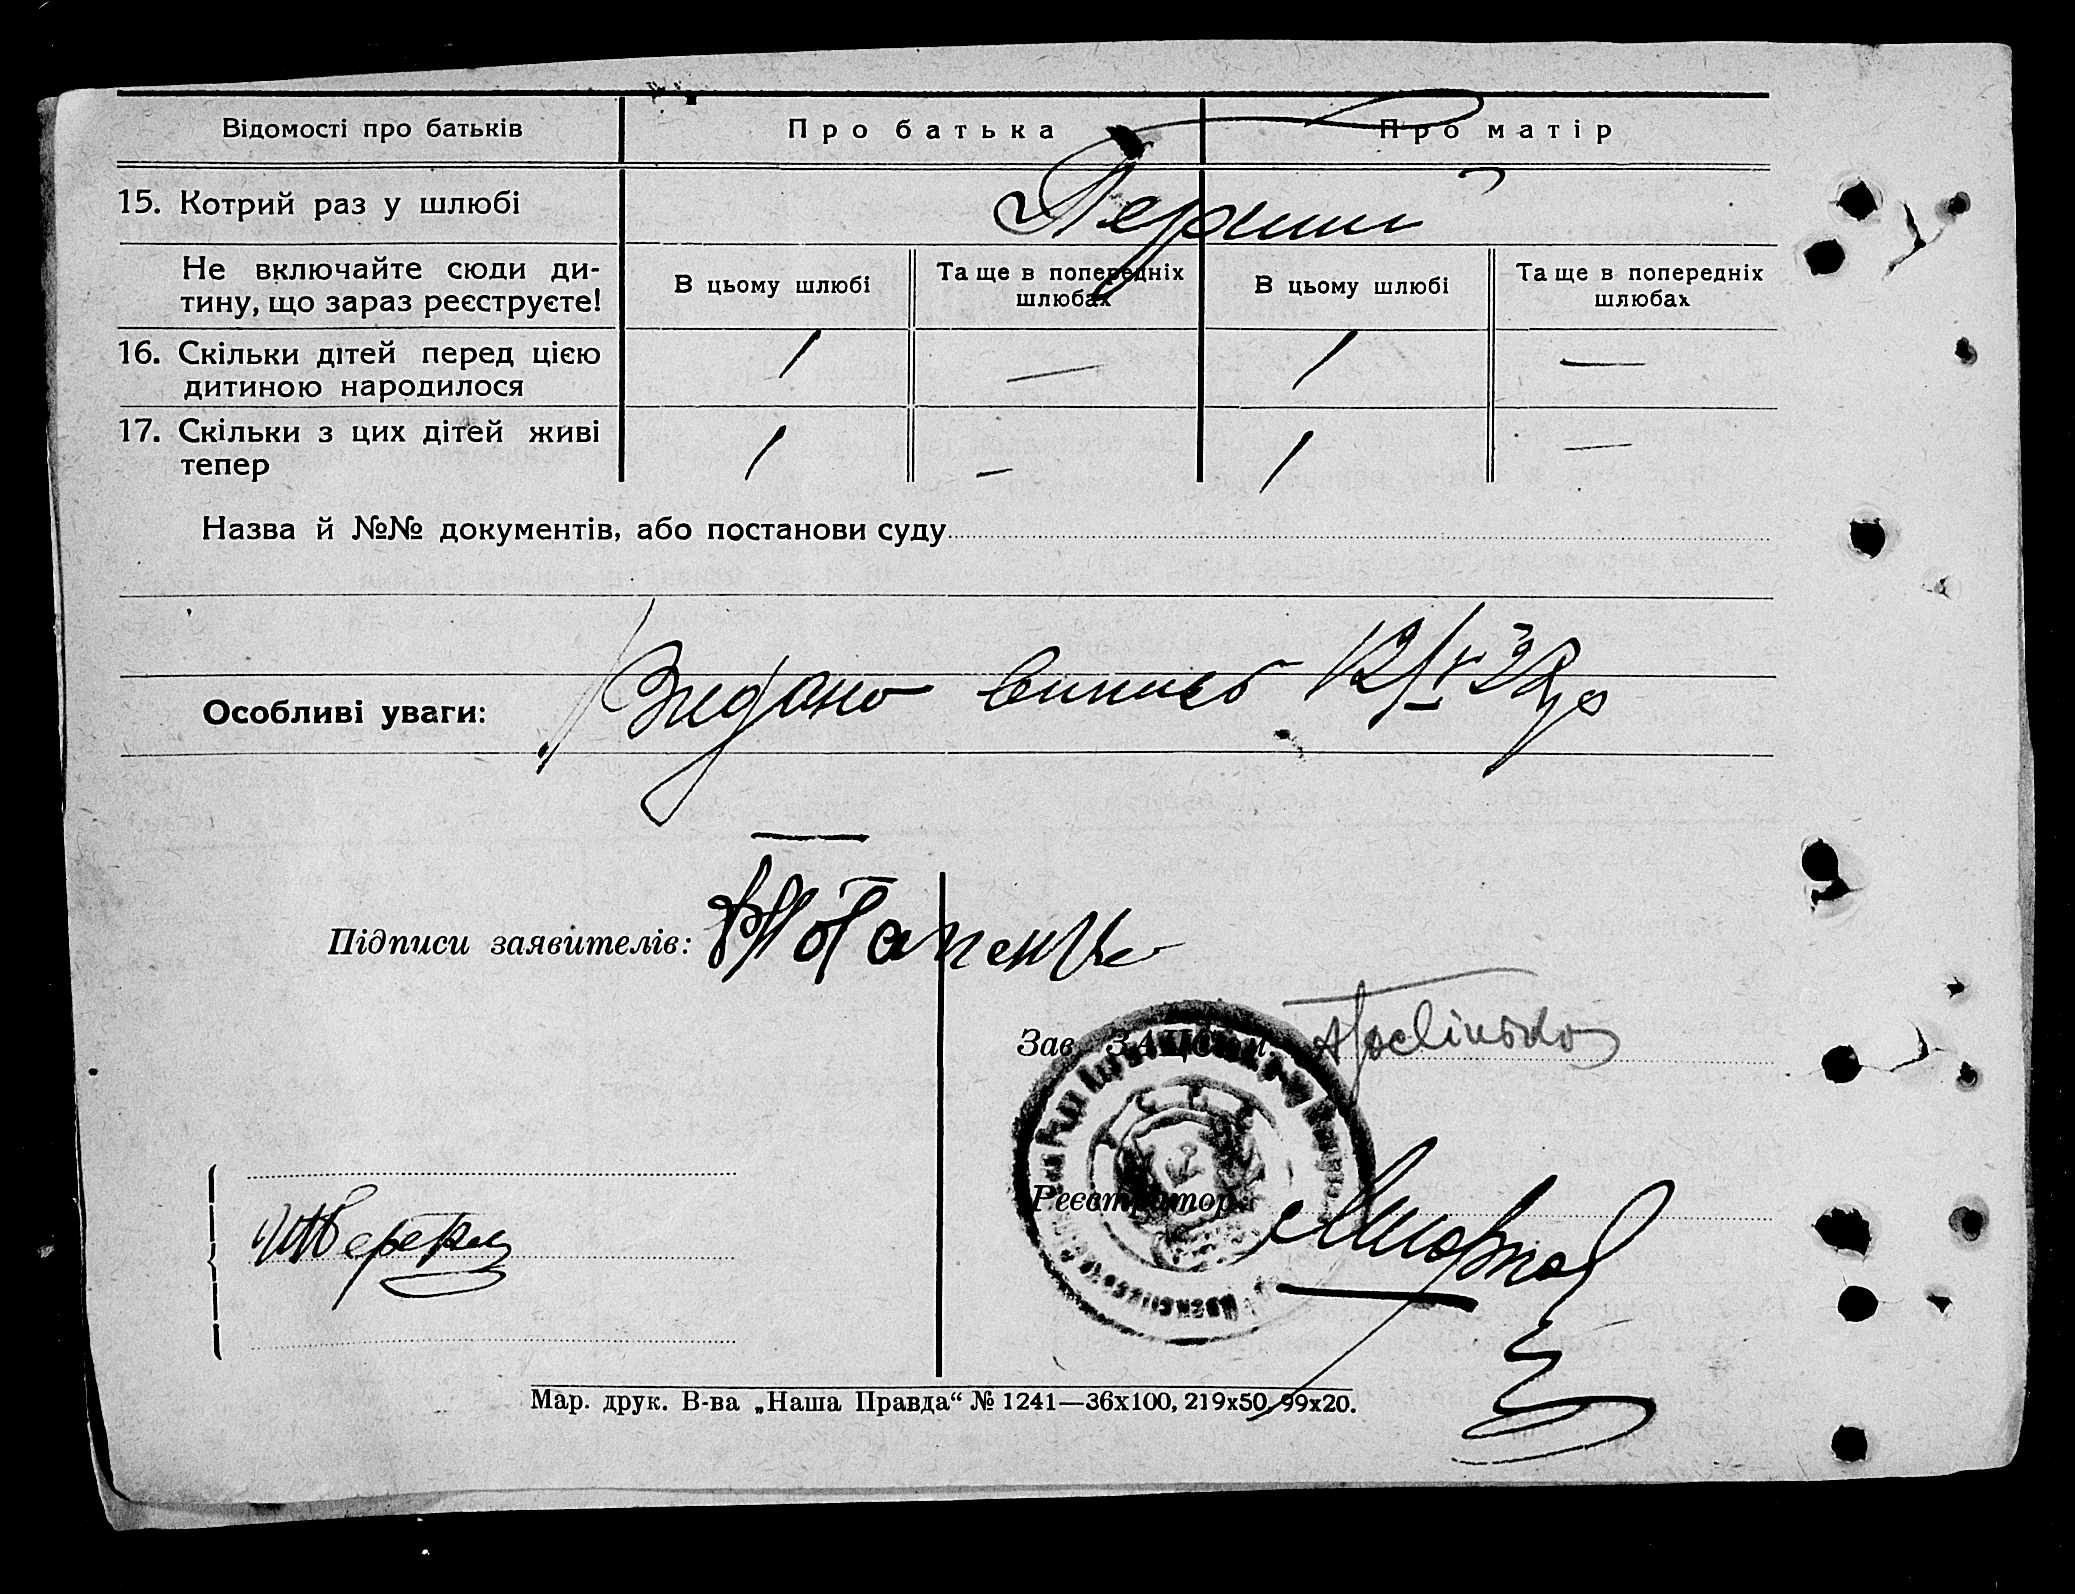 Відомості про батьків Про батька Про матір
15. Котрий раз у шлюбі Перший
Не включайте сюди ди-
тину, що зараз реєструєте!
В цьому шлюбі
Та ще в попередніх
шлюбах
В цьому шлюбі
Та ще в попередніх
шлюбах
16. Скільки дітей перед цією
дитиною народилося
1 — 1 —
17. Скільки з цих дітей живі
тепер
1 — 1 —
Назва й №№ документів, або постанови суду
Особливі уваги: Видано випись
Підписи заявителів:
Зав. ЗАЦС'ом
Реєстратор
Мар. друк. В-ва „Наша Правда“ № 1241—36х100, 219х50, 99х20.